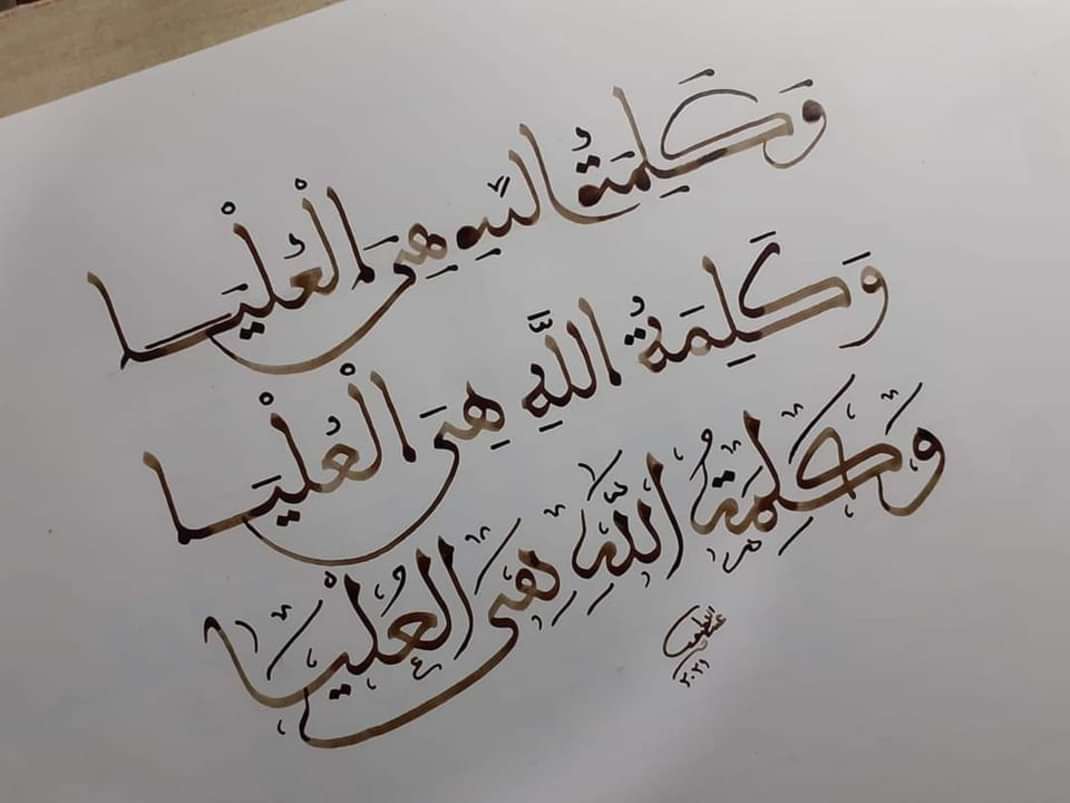 وَكَلِمَةُ اللَّهِ هِىَ الْعُلْيَا
وَكَلِمَةُ اللَّهِ هِىَ الْعُلْيَا
وَكَلِمَةُ اللَّهِ هِىَ الْعُلْيَا
٢٠٢١